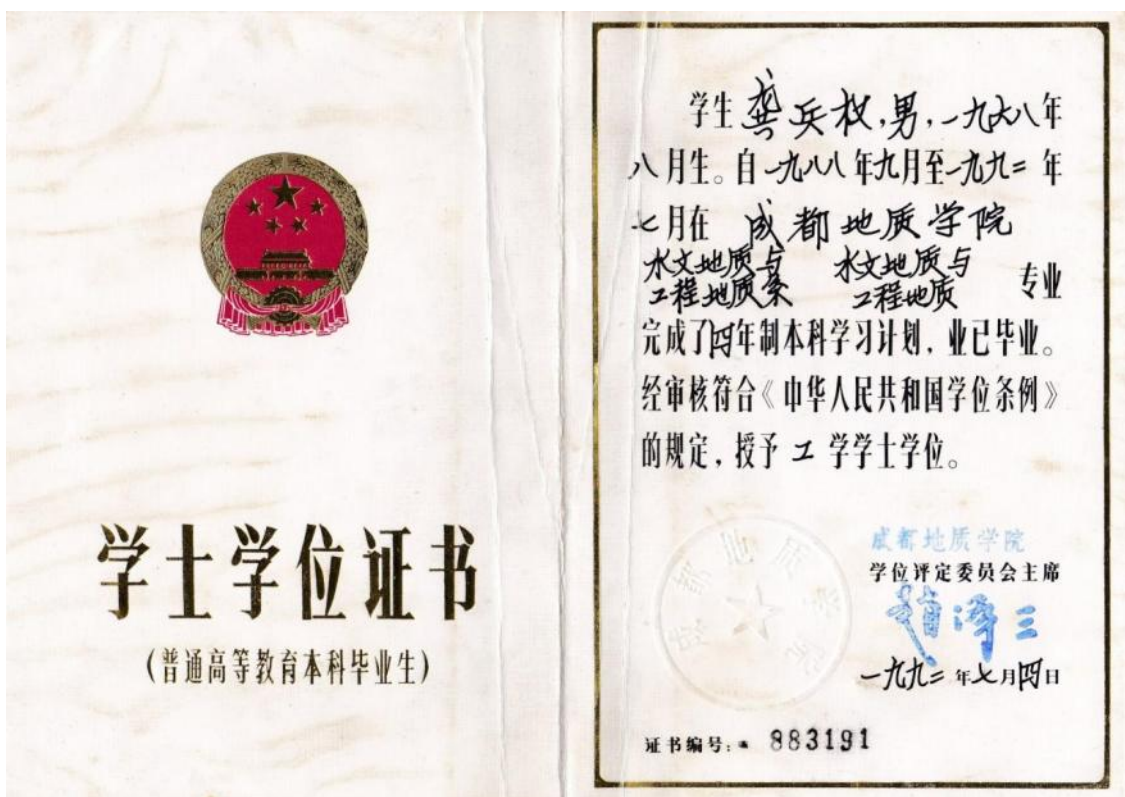 学士学位证书
(普通高等教育本科毕业生)
学生 龚兵权,男,一九六八年
八月生。自一九八八年九月至一九九二年
七月在 成都地质学院
水文地质与 水文地质与
工程地质系 工程地质 专业
完成了四年制本科学习计划,业已毕业。
经审核符合《中华人民共和国学位条例》
的规定,授予 工 学学士学位。
成都地质学院
成都地质学院
学位评定委员会主席
泽三
一九九二年七月四日
证书编号: 883191